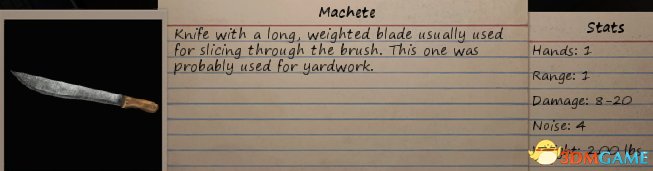 Machete
Knife with a long, weighted blade usually used
for slicing through the brush. This one was
probably used for yardwork.
Stats
Hands: 1
Range: 1
Damage: 8-20
Noise: 4
2.00 lbs
3DMGAME